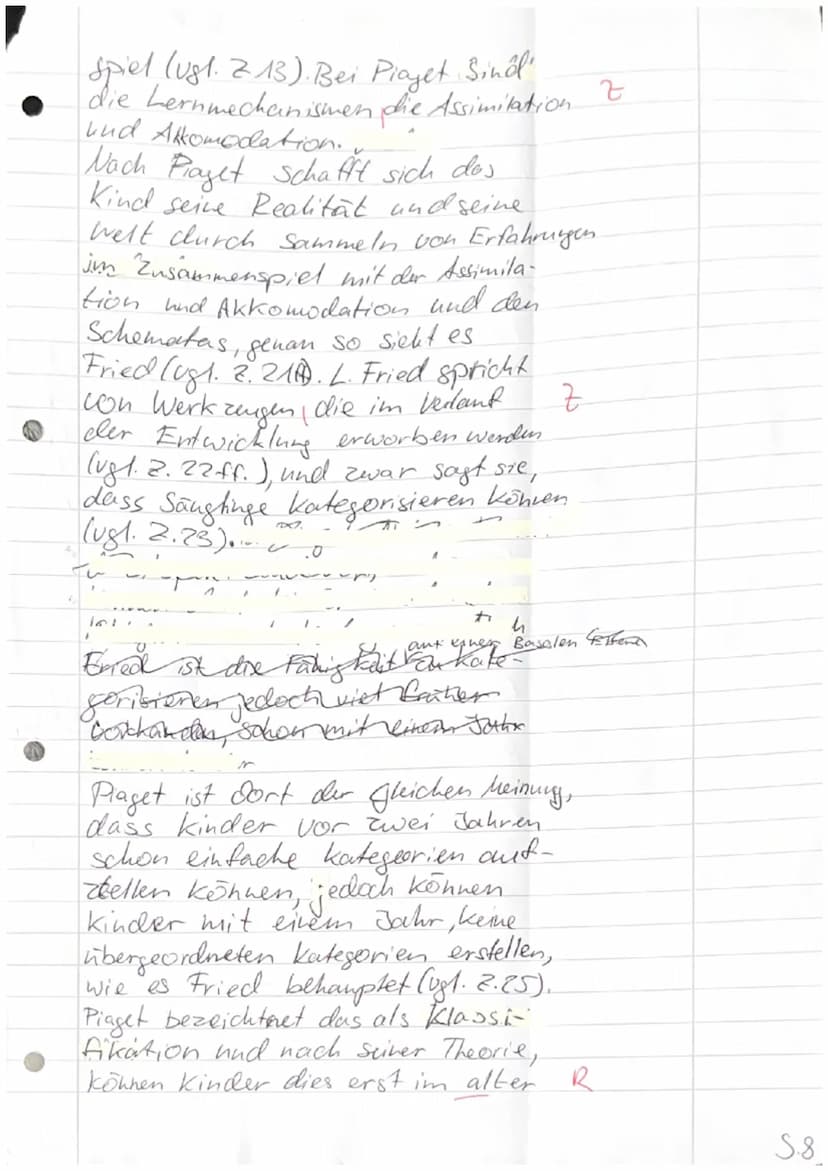 spiel (vgl. Z 13). Bei Piaget sind
die Lernmechanismen die Assimilation Z
und Akkomodation.
Nach Piaget schafft sich das
Kind seine Realität und seine
Welt durch sammeln von Erfahrungen
im Zusammenspiel mit der Assimila-
tion und Akkomodation und den
Schematas, genau so sieht es
Fried (vgl. Z. 21f). L. Fried spricht
von Werkzeugen, die im Verlauf Z
der Entwicklung erworben werden
(vgl. Z. 22ff.), und zwar sagt sie,
dass Säuglinge kategorisieren können
(vgl. Z. 23).
auf einer Basalen
Fried ist die Fähigkeit zu kate-
gorisieren jedoch viel früher
vorhanden, schon mit einem Jahr
Piaget ist dort der gleichen Meinung,
dass kinder vor zwei Jahren
schon einfache kategeorien auf-
stellen können, jedoch können
kinder mit einem Jahr, keine
übergeordneten kategorien erstellen,
wie es Fried behauptet (vgl. Z. 25).
Piaget bezeichnet das als Klassi-
fikation und nach seiner Theorie,
können kinder dies erst im alter R
S. 8